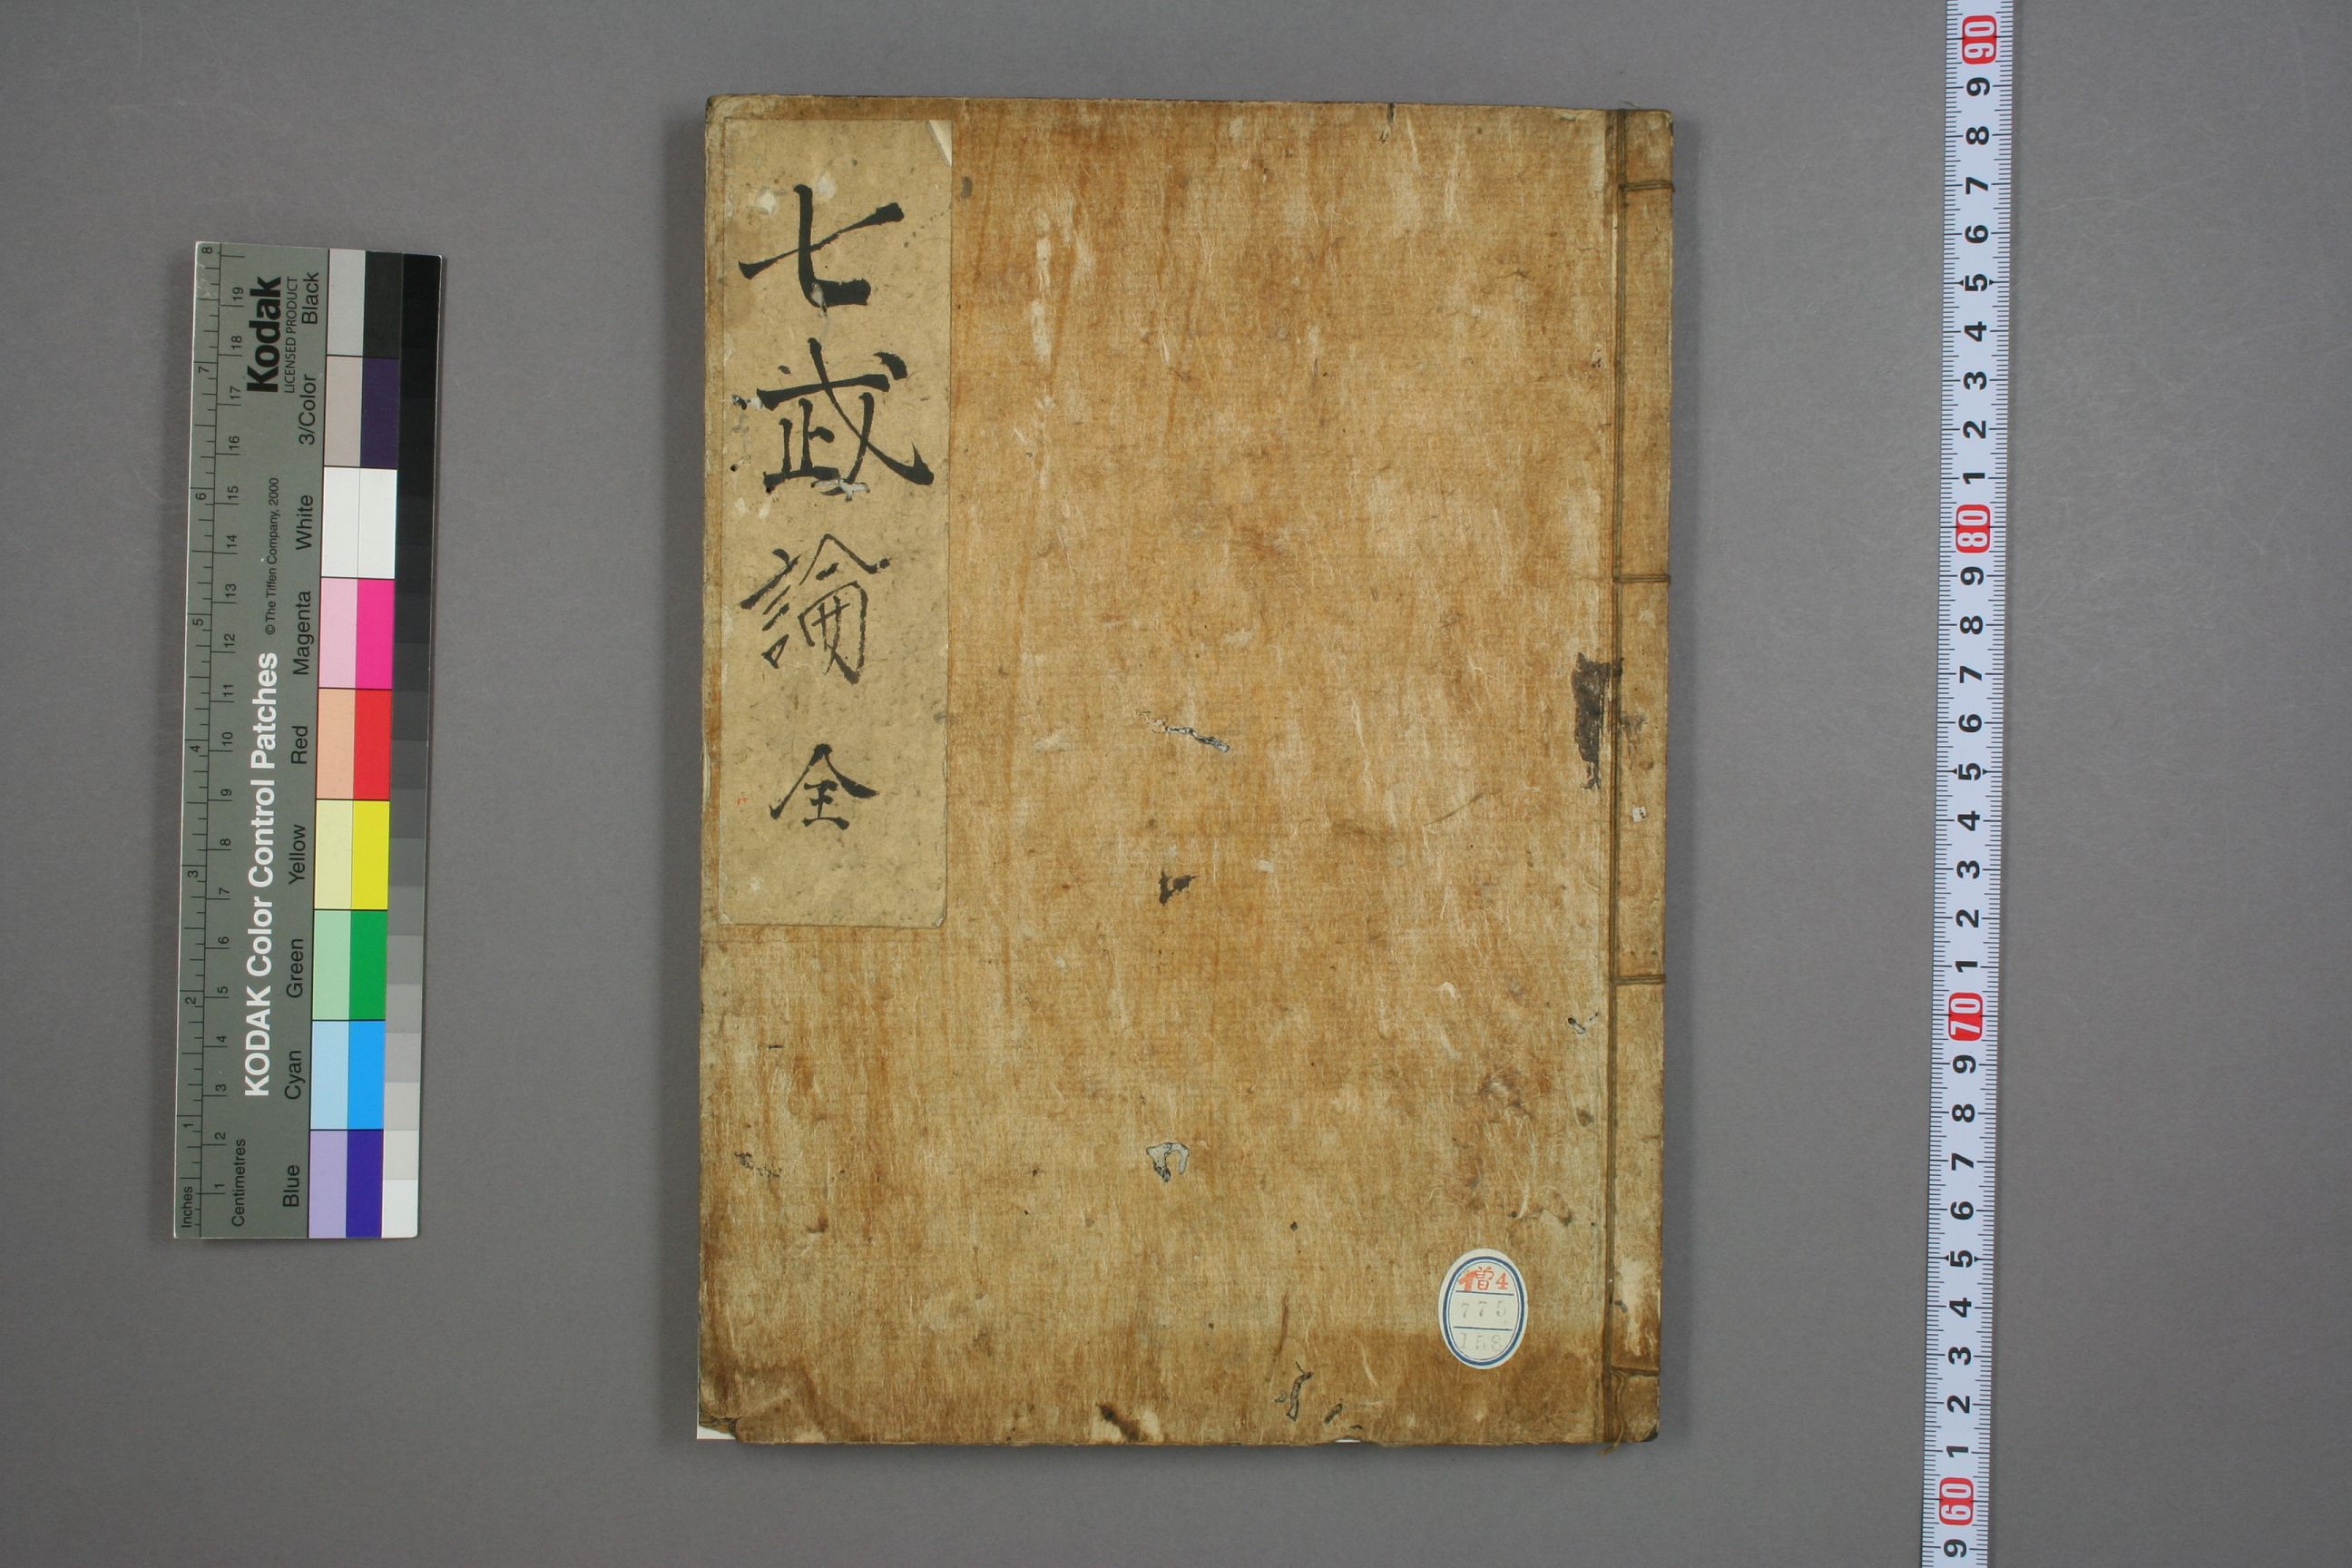 七武論 全
増4
775
158
KODAK Color Control Patches
©The Tiffen Company, 2000
Kodak
LICENSED PRODUCT
Inches
1
2
3
4
5
6
7
8
Centimetres
1
2
3
4
5
6
7
8
9
10
11
12
13
14
15
16
17
18
19
Blue
Cyan
Green
Yellow
Red
Magenta
White
3/Color
Black
9
60
1
2
3
4
5
6
7
8
9
70
1
2
3
4
5
6
7
8
9
80
1
2
3
4
5
6
7
8
9
90